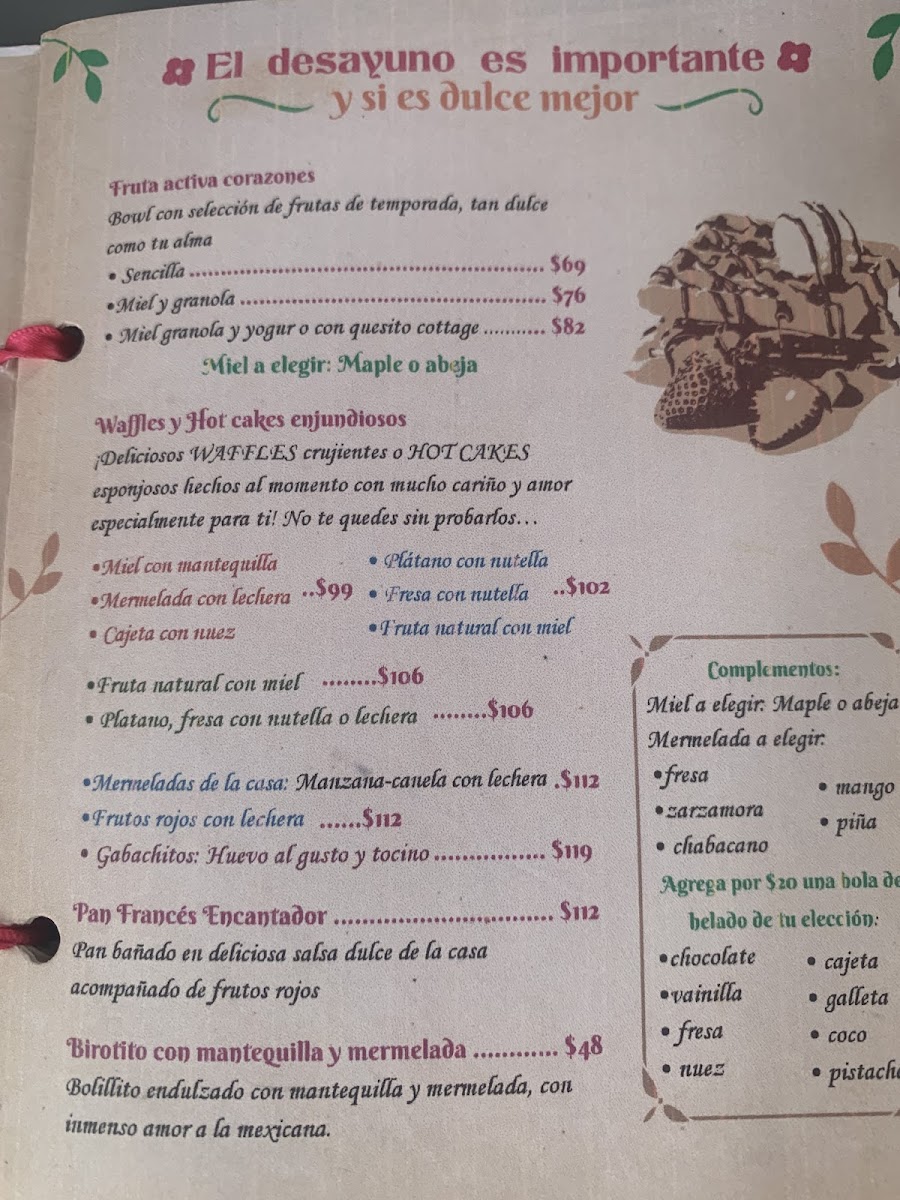 El desayuno es importante
y si es dulce mejor
Fruta activa corazones
Bowl con selección de frutas de temporada, tan dulce
como tu alma
• Sencilla ........ $69
•Miel y granola ........ $76
• Miel granola y yogur o con quesito cottage ........... $82
Miel a elegir: Maple o abeja
Waffles y Hot cakes enjundiosos
¡Deliciosos WAFFLES crujientes o HOT CAKES
esponjosos hechos al momento con mucho cariño y amor
especialmente para ti! No te quedes sin probarlos...
•Miel con mantequilla
•Mermelada con lechera ..$99
• Cajeta con nuez
• Plátano con nutella
• Fresa con nutella ..$102
•Fruta natural con miel
•Fruta natural con miel ........$106
• Platano, fresa con nutella o lechera ........$106
•Mermeladas de la casa: Manzana-canela con lechera .$112
•Frutos rojos con lechera ......$112
• Gabachitos: Huevo al gusto y tocino ................. $119
Pan Francés Encantador ............................... $112
Pan bañado en deliciosa salsa dulce de la casa
acompañado de frutos rojos
Birotito con mantequilla y mermelada ............ $48
Bolillito endulzado con mantequilla y mermelada, con
inmenso amor a la mexicana.
Complementos:
Miel a elegir: Maple o abeja
Mermelada a elegir:
•fresa
•zarzamora
• chabacano
• mango
• piña
Agrega por $20 una bola de
helado de tu elección:
•chocolate
•vainilla
• fresa
• nuez
• cajeta
• galleta
• coco
• pistach